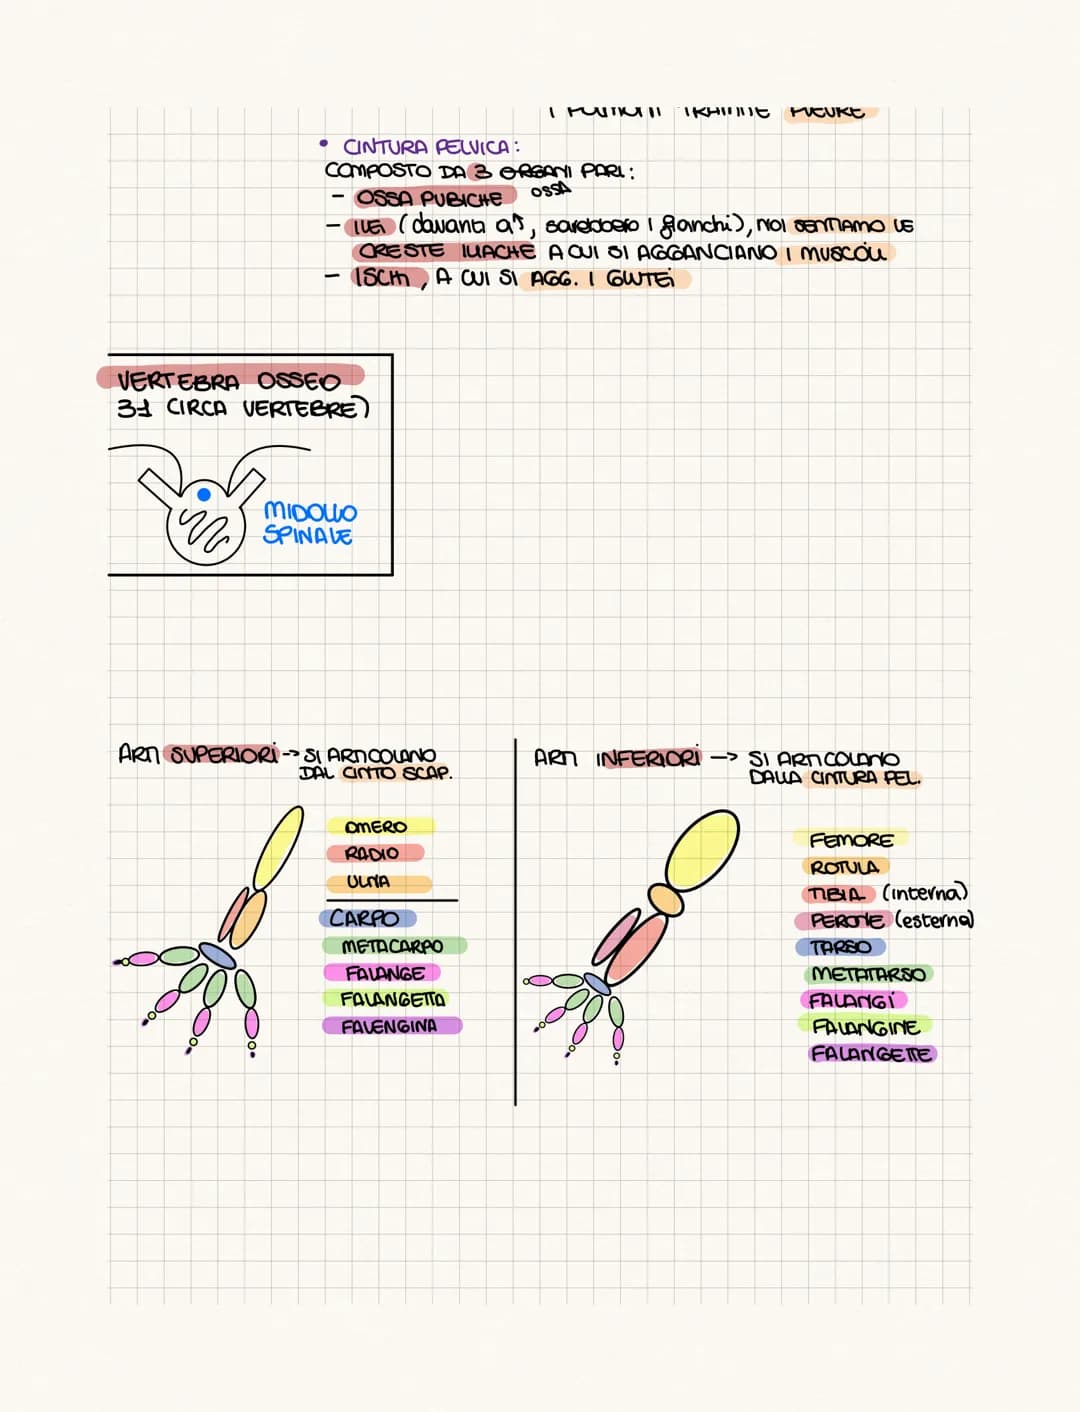 I POLMONI TRAMITE PLEURE
• CINTURA PELVICA:
COMPOSTO DA 3 ORGANI PARI:
OSSA
- OSSA PUBICHE
- ILEI (davanti a↑, sarebbero i fianchi), NOI SENTIAMO LE
CRESTE ILIACHE A CUI SI AGGANCIANO I MUSCOLI
- ISCHI, A CUI SI AGG. I GLUTEI
VERTEBRA OSSEO
31 CIRCA VERTEBRE)
MIDOLLO
SPINALE
ARTI SUPERIORI -> SI ARTICOLANO
DAL CINTO SCAP.
OMERO
RADIO
ULNA
CARPO
METACARPO
FALANGE
FALANGETTA
FALENGINA
ARTI INFERIORI -> SI ARTICOLANO
DALLA CINTURA PEL.
FEMORE
ROTULA
TIBIA (interna)
PERONE (esterna)
TARSO
METATARSO
FALANGI
FALANGINE
FALANGETTE